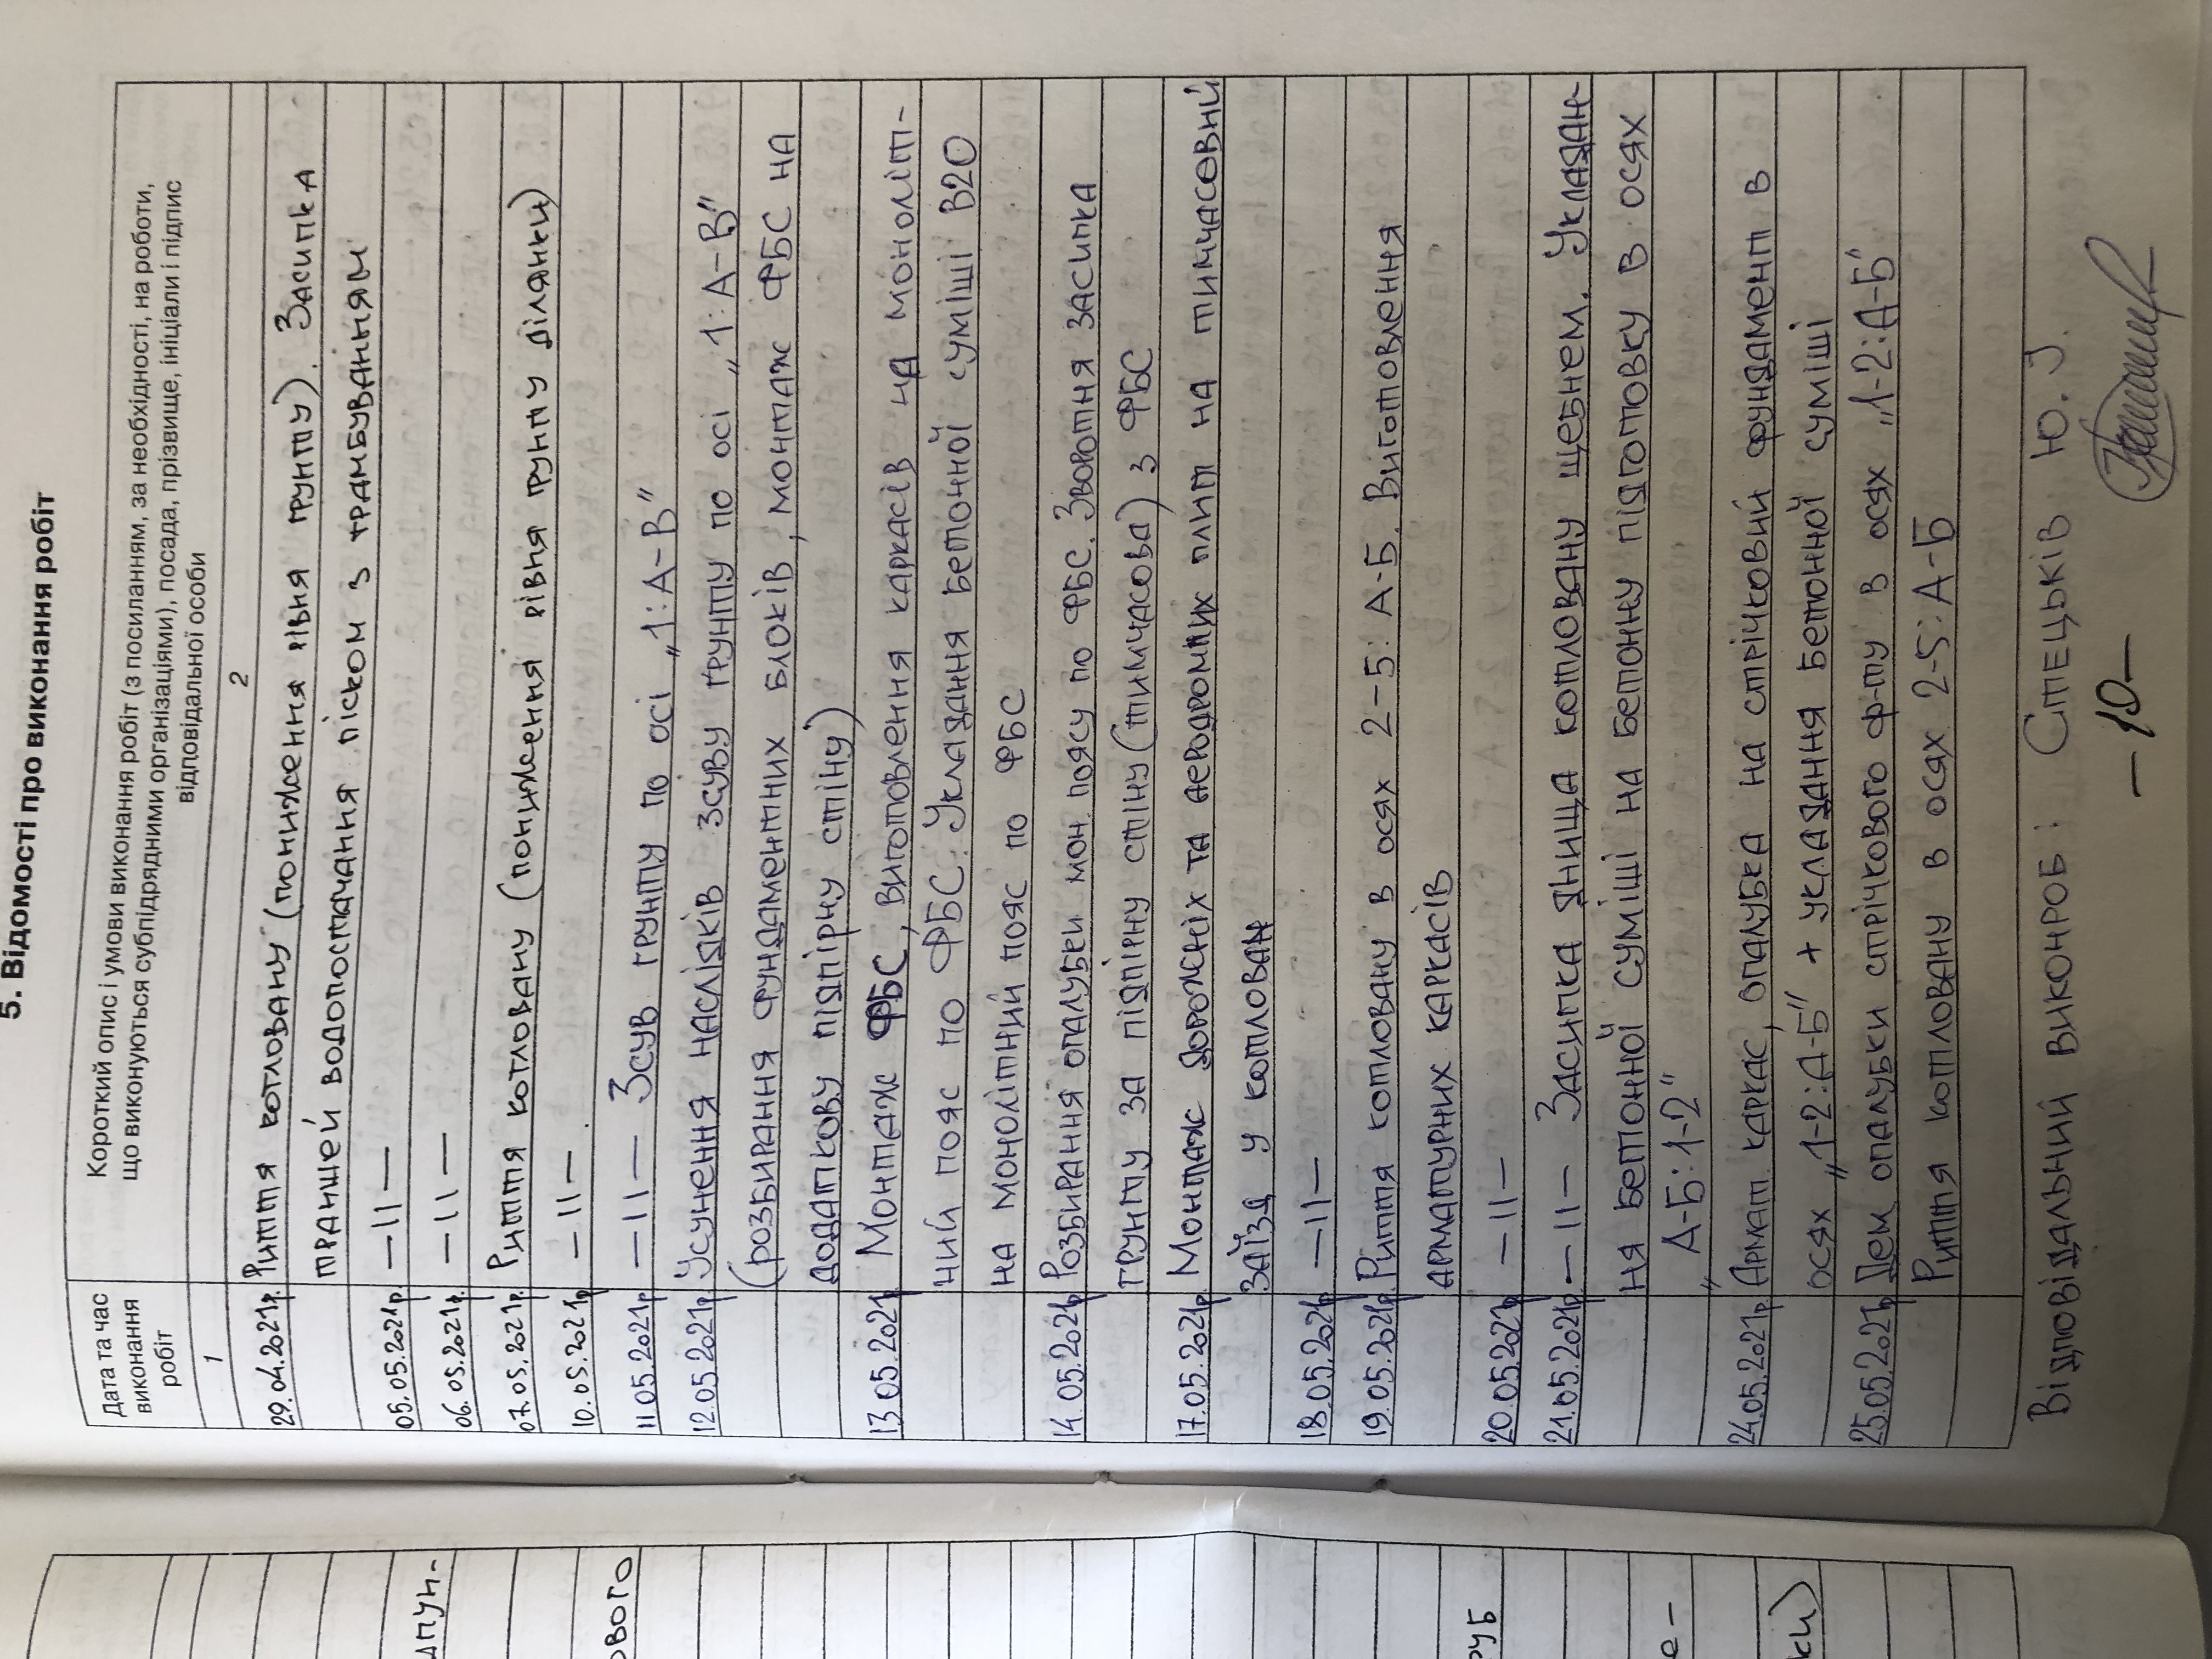 5. Відомості про виконання робіт
Дата та час
виконання
робіт
Короткий опис і умови виконання робіт (з посиланням, за необхідності, на роботи,
що виконуються субпідрядними організаціями), посада, прізвище, ініціали і підпис
відповідальної особи
1
2
29.04.2021р. Риття котловану (пониження рівня грунту). Засипка
траншей водопостачання піском з трамбуванням
05.05.2021р. —11—
06.05.2021р. —11—
07.05.2021р. Риття котловану (пониження рівня грунту ділянки)
10.05.2021р —11—
11.05.2021р. —11— Зсув грунту по осі „1:А-В"
12.05.2021р. Усунення наслідків зсуву грунту по осі „1:А-В"
(розбирання фундаментних блоків, монтаж ФБС на
додаткову підпірну стіну)
13.05.2021р Монтаж ФБС, виготовлення каркасів на моноліт-
ний пояс по ФБС. Укладання бетонної суміші В20
на монолітний пояс по ФБС
14.05.2021р Розбирання опалубки мон. поясу по ФБС. Зворотня засипка
грунту за підпірну стіну (тимчасова) з ФБС
17.05.2021р. Монтаж дорожніх та аеродромних плит на тимчасовий
заїзд у котлован
18.05.2021р —11—
19.05.2021р Риття котловану в осях 2-5: А-Б. Виготовлення
арматурних каркасів
20.05.2021р —11—
21.05.2021р. —11— Засипка днища котловану щебнем. Укладан-
ня бетонної суміші на бетонну підготовку в осях
„А-Б:1-2"
24.05.2021р. Армат. каркас, опалубка на стрічковий фундамент в
осях „1-2:А-Б" + укладання бетонної суміші
25.05.2021р Дем. опалубки стрічкового ф-ту в осях „1-2:А-Б"
Риття котловану в осях 2-5:А-Б
Відповідальний виконроб: Стецьків Ю. І.
—10—
ового
руб
е-
ки)